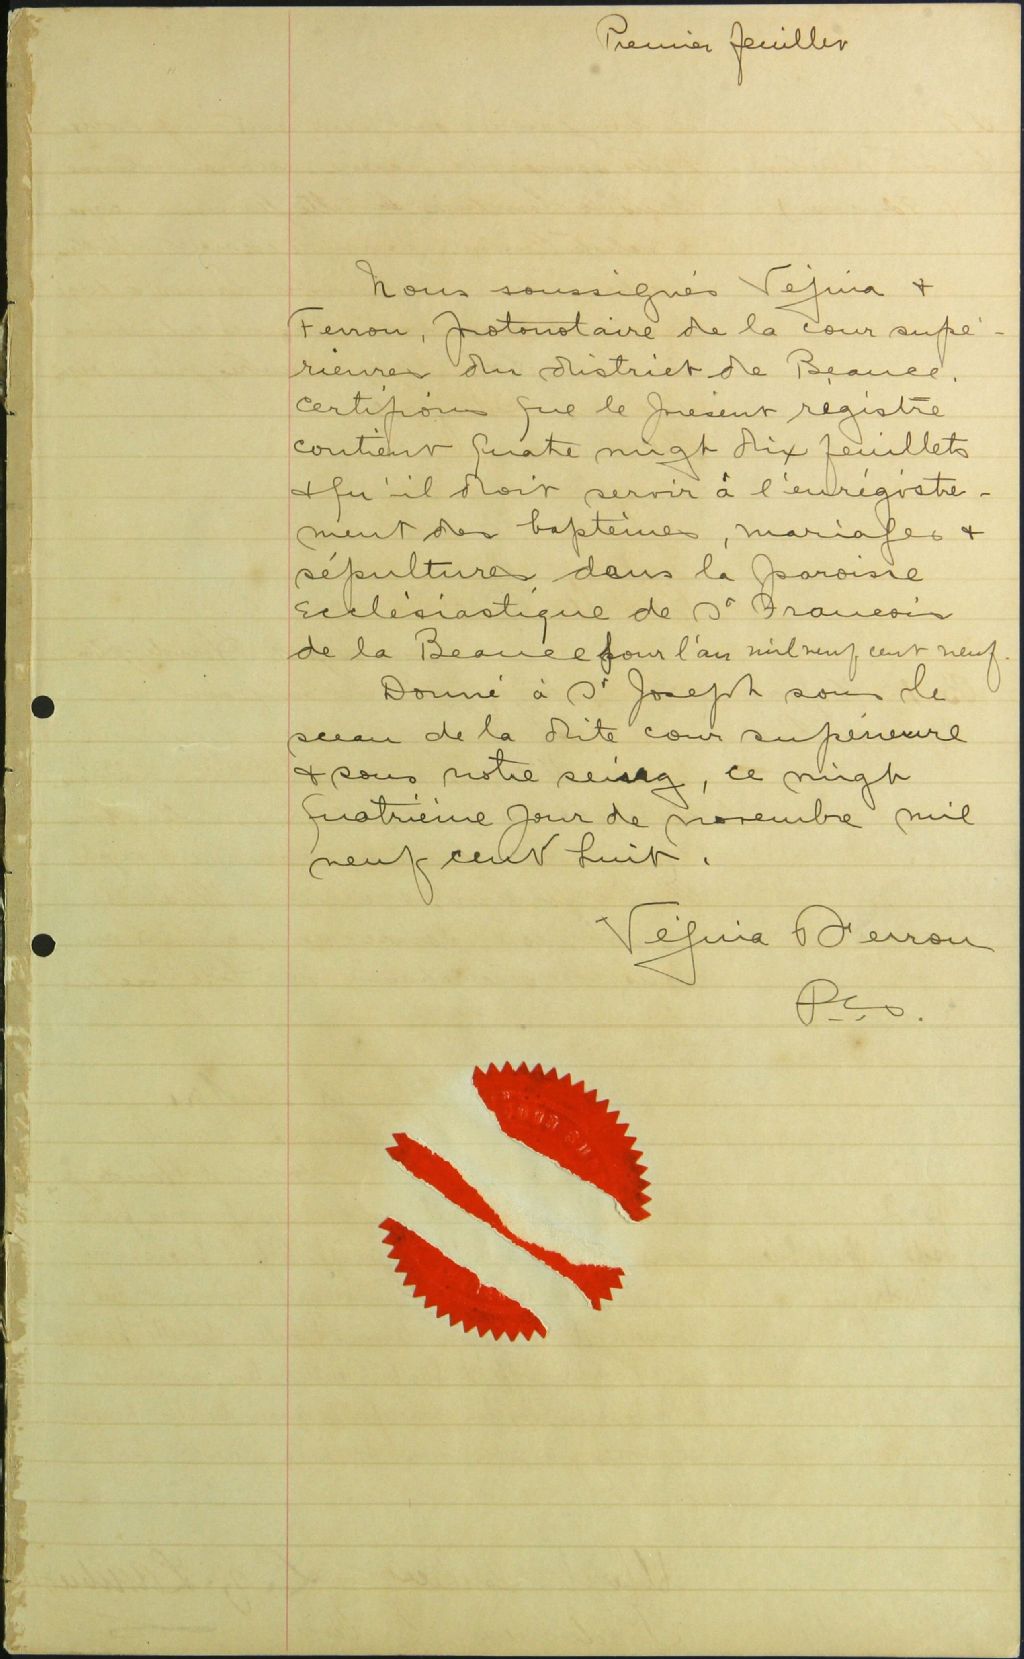 Premier feuillet
Nous soussignés Vézina &
Ferron, protonotaire de la cour supé-
rieures du district de Beauce,
certifions que le présent régistre
contient quatre vingt dix feuillets
& qu'il doit servir à l'enrégistre-
ment des baptêmes, mariages &
sépultures dans la paroisse
Ecclésiastique de St Francois
de la Beauce pour l'an mil neuf cent neuf.
Donné à St Joseph sous le
sceau de la dite cour supérieure
& sous notre seing, ce vingt
quatrième jour de novembre mil
neuf cent huit.
Vézina & Ferron
P.C.S.